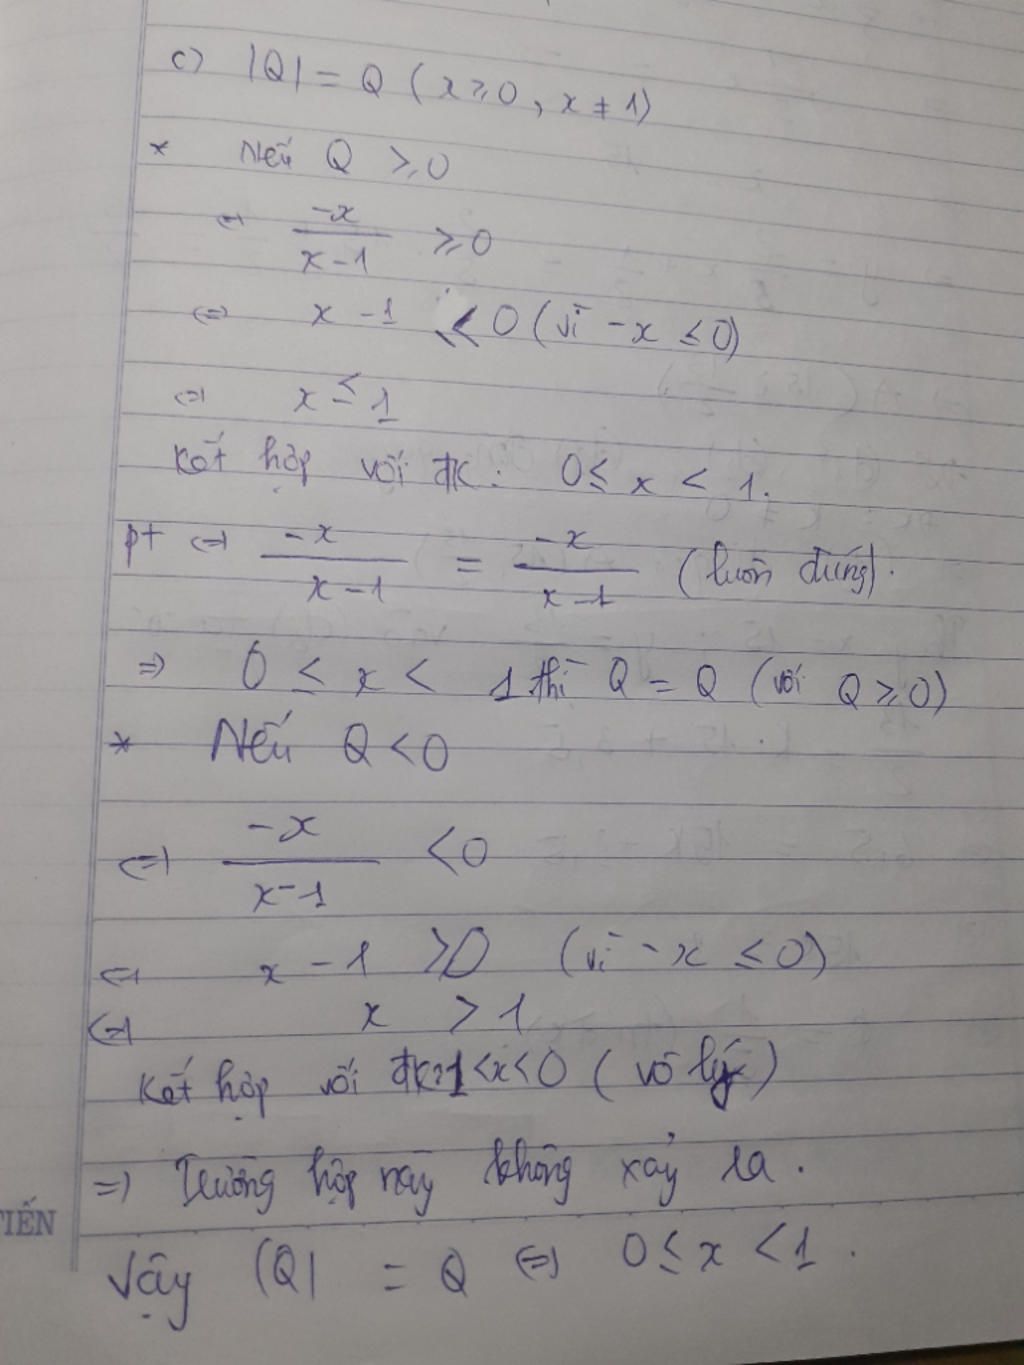 c) |Q| = Q ( x ≥ 0 , x ≠ 1 )
* Nếu Q ≥ 0
⇔ -x / x-1 ≥ 0
⇔ x - 1 < 0 ( vì -x ≤ 0)
⇔ x ≤ 1
Kết hợp với đk : 0 ≤ x < 1.
pt ⇔ -x / x-1 = -x / x-1 ( luôn đúng).
⇒ 0 ≤ x < 1 thì Q = Q ( với Q ≥ 0 )
* Nếu Q < 0
⇔ -x / x-1 < 0
⇔ x - 1 > 0 ( vì -x ≤ 0 )
⇔ x > 1
Kết hợp với đk: 1 < x < 0 ( vô lý )
⇒ Trường hợp này không xảy ra .
TIẾN
Vậy |Q| = Q ⇔ 0 ≤ x < 1 .